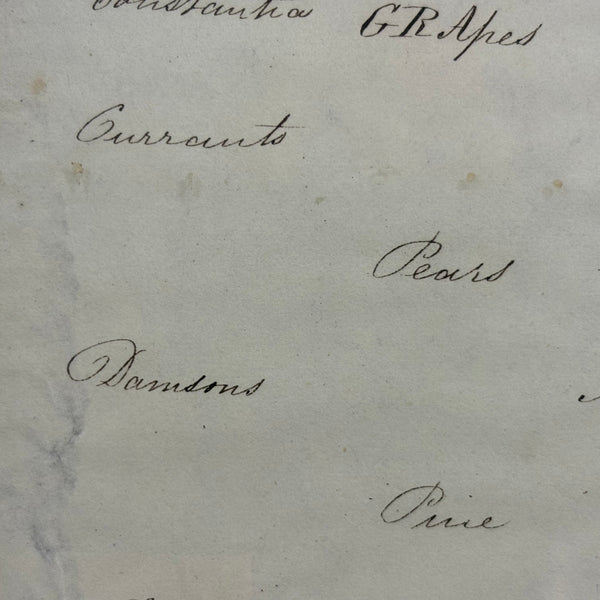 Constantia GRApes
Currants
Pears
Damsons
Pine